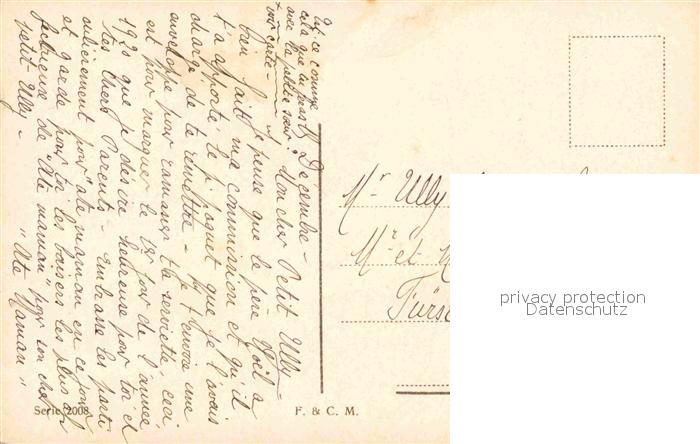 31 Décembre -
Mon cher Petit Ully -
Je pense que le père Noël a
bien fait ma commission et qu'il
t'a apporté le p. paquet que je l'avais
chargé de te remettre - j'y envoie une
enveloppe pour ramasser ta serviette, ceci
est pour marquer le 1er jour de l'année
1920 que je désire heureuse pour toi et
tes chers Parents - Embrasse les parti-
culièrement pour "ate maman" en ce jour
et garde pour toi les baisers les plus af-
fectueux de "Ate maman" pour son cher
petit - Ully -
"Ate Maman"
ce comme
cela que tu
avec la petite sœur?
voir carte -
Mr Ully
Mr et M
Fürs
Serie 2008
F. & C. M.
privacy protection
Datenschutz